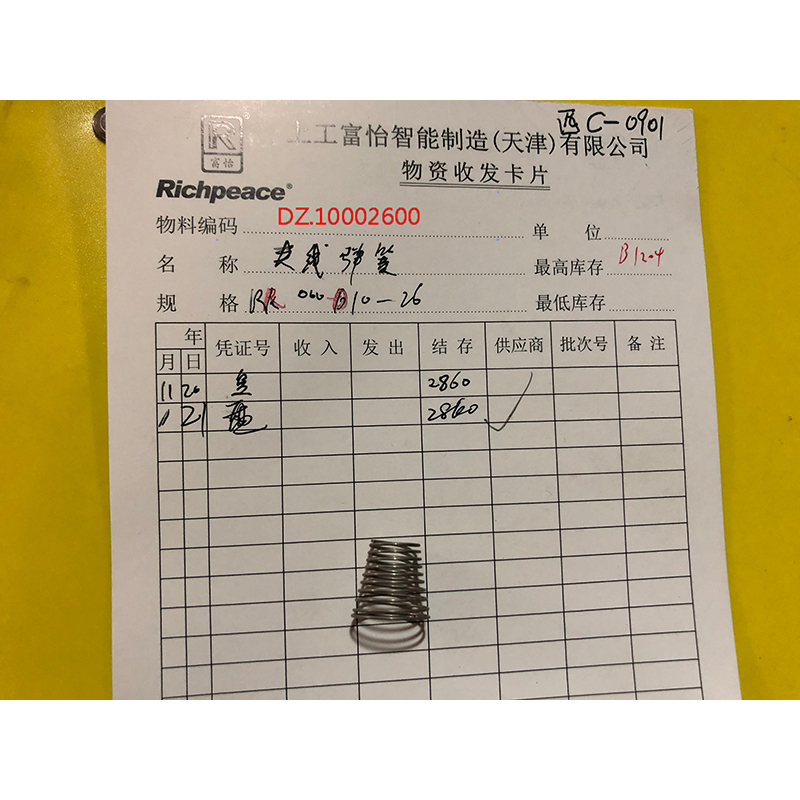 西C-0901
上工富怡智能制造(天津)有限公司
R
富怡
Richpeace®
物资收发卡片
物料编码 DZ.10002600 单位
名称 夹线弹簧 最高库存 B1204
规格 10-26 最低库存
年 凭证号 收入 发出 结存 供应商 批次号 备注
月 日
11 20 2860
11 21 2860